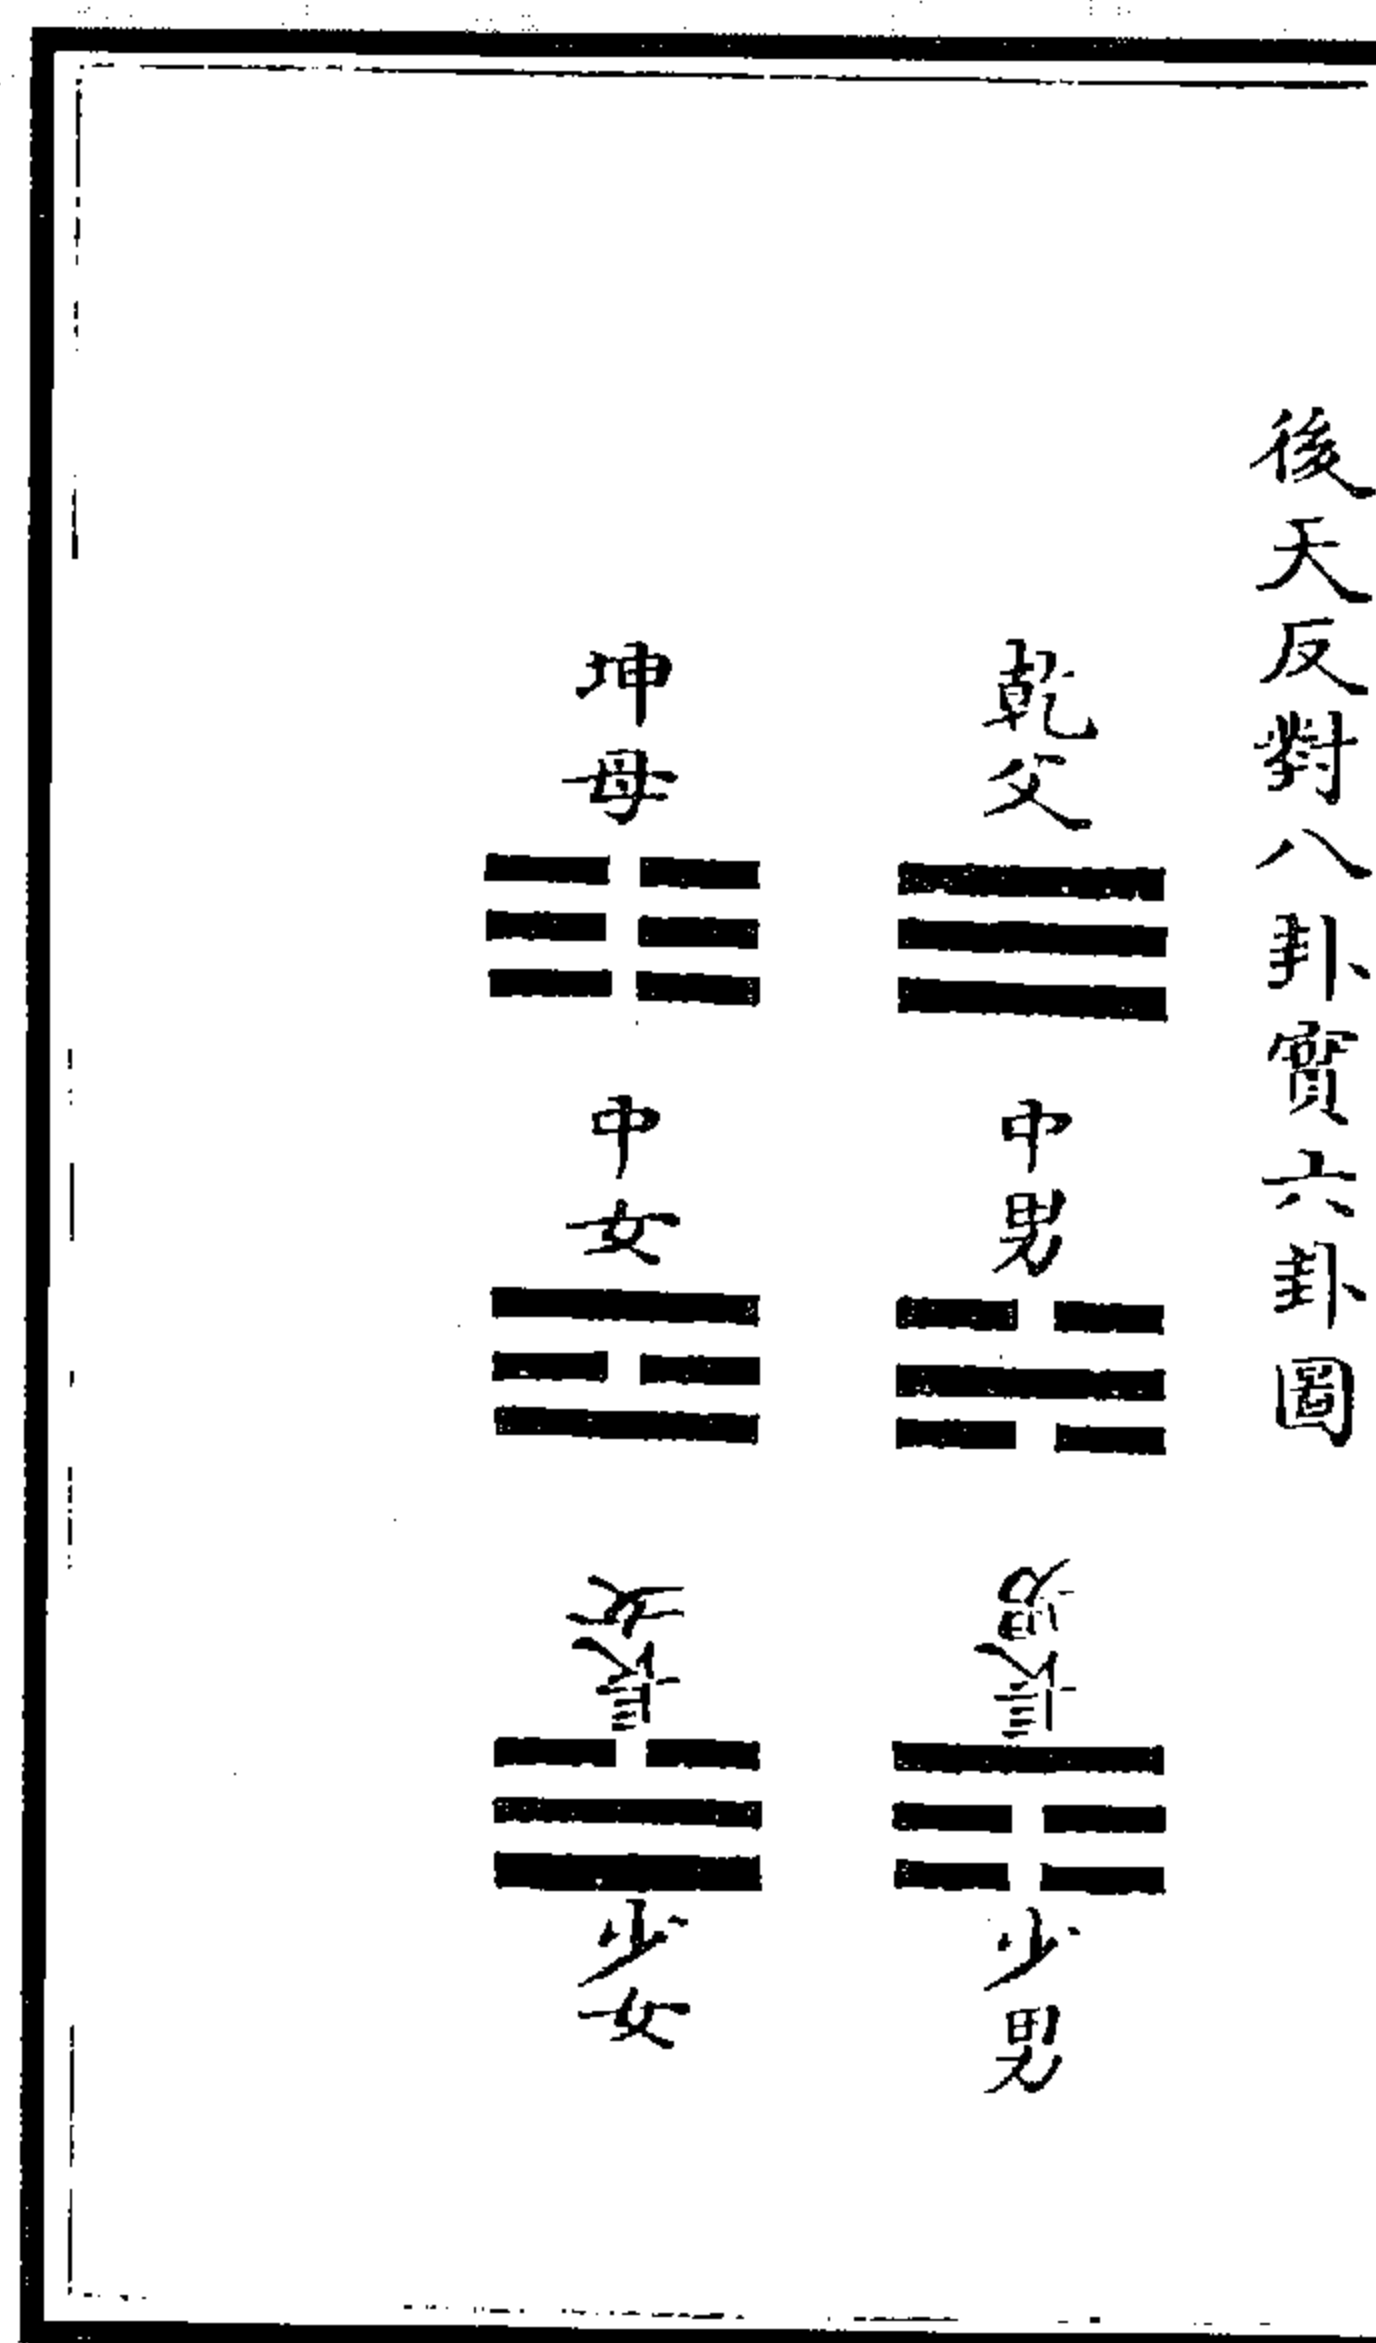 後天反對八卦實六卦圖
乾父
中男
長男
少男
坤母
中女
長女
少女